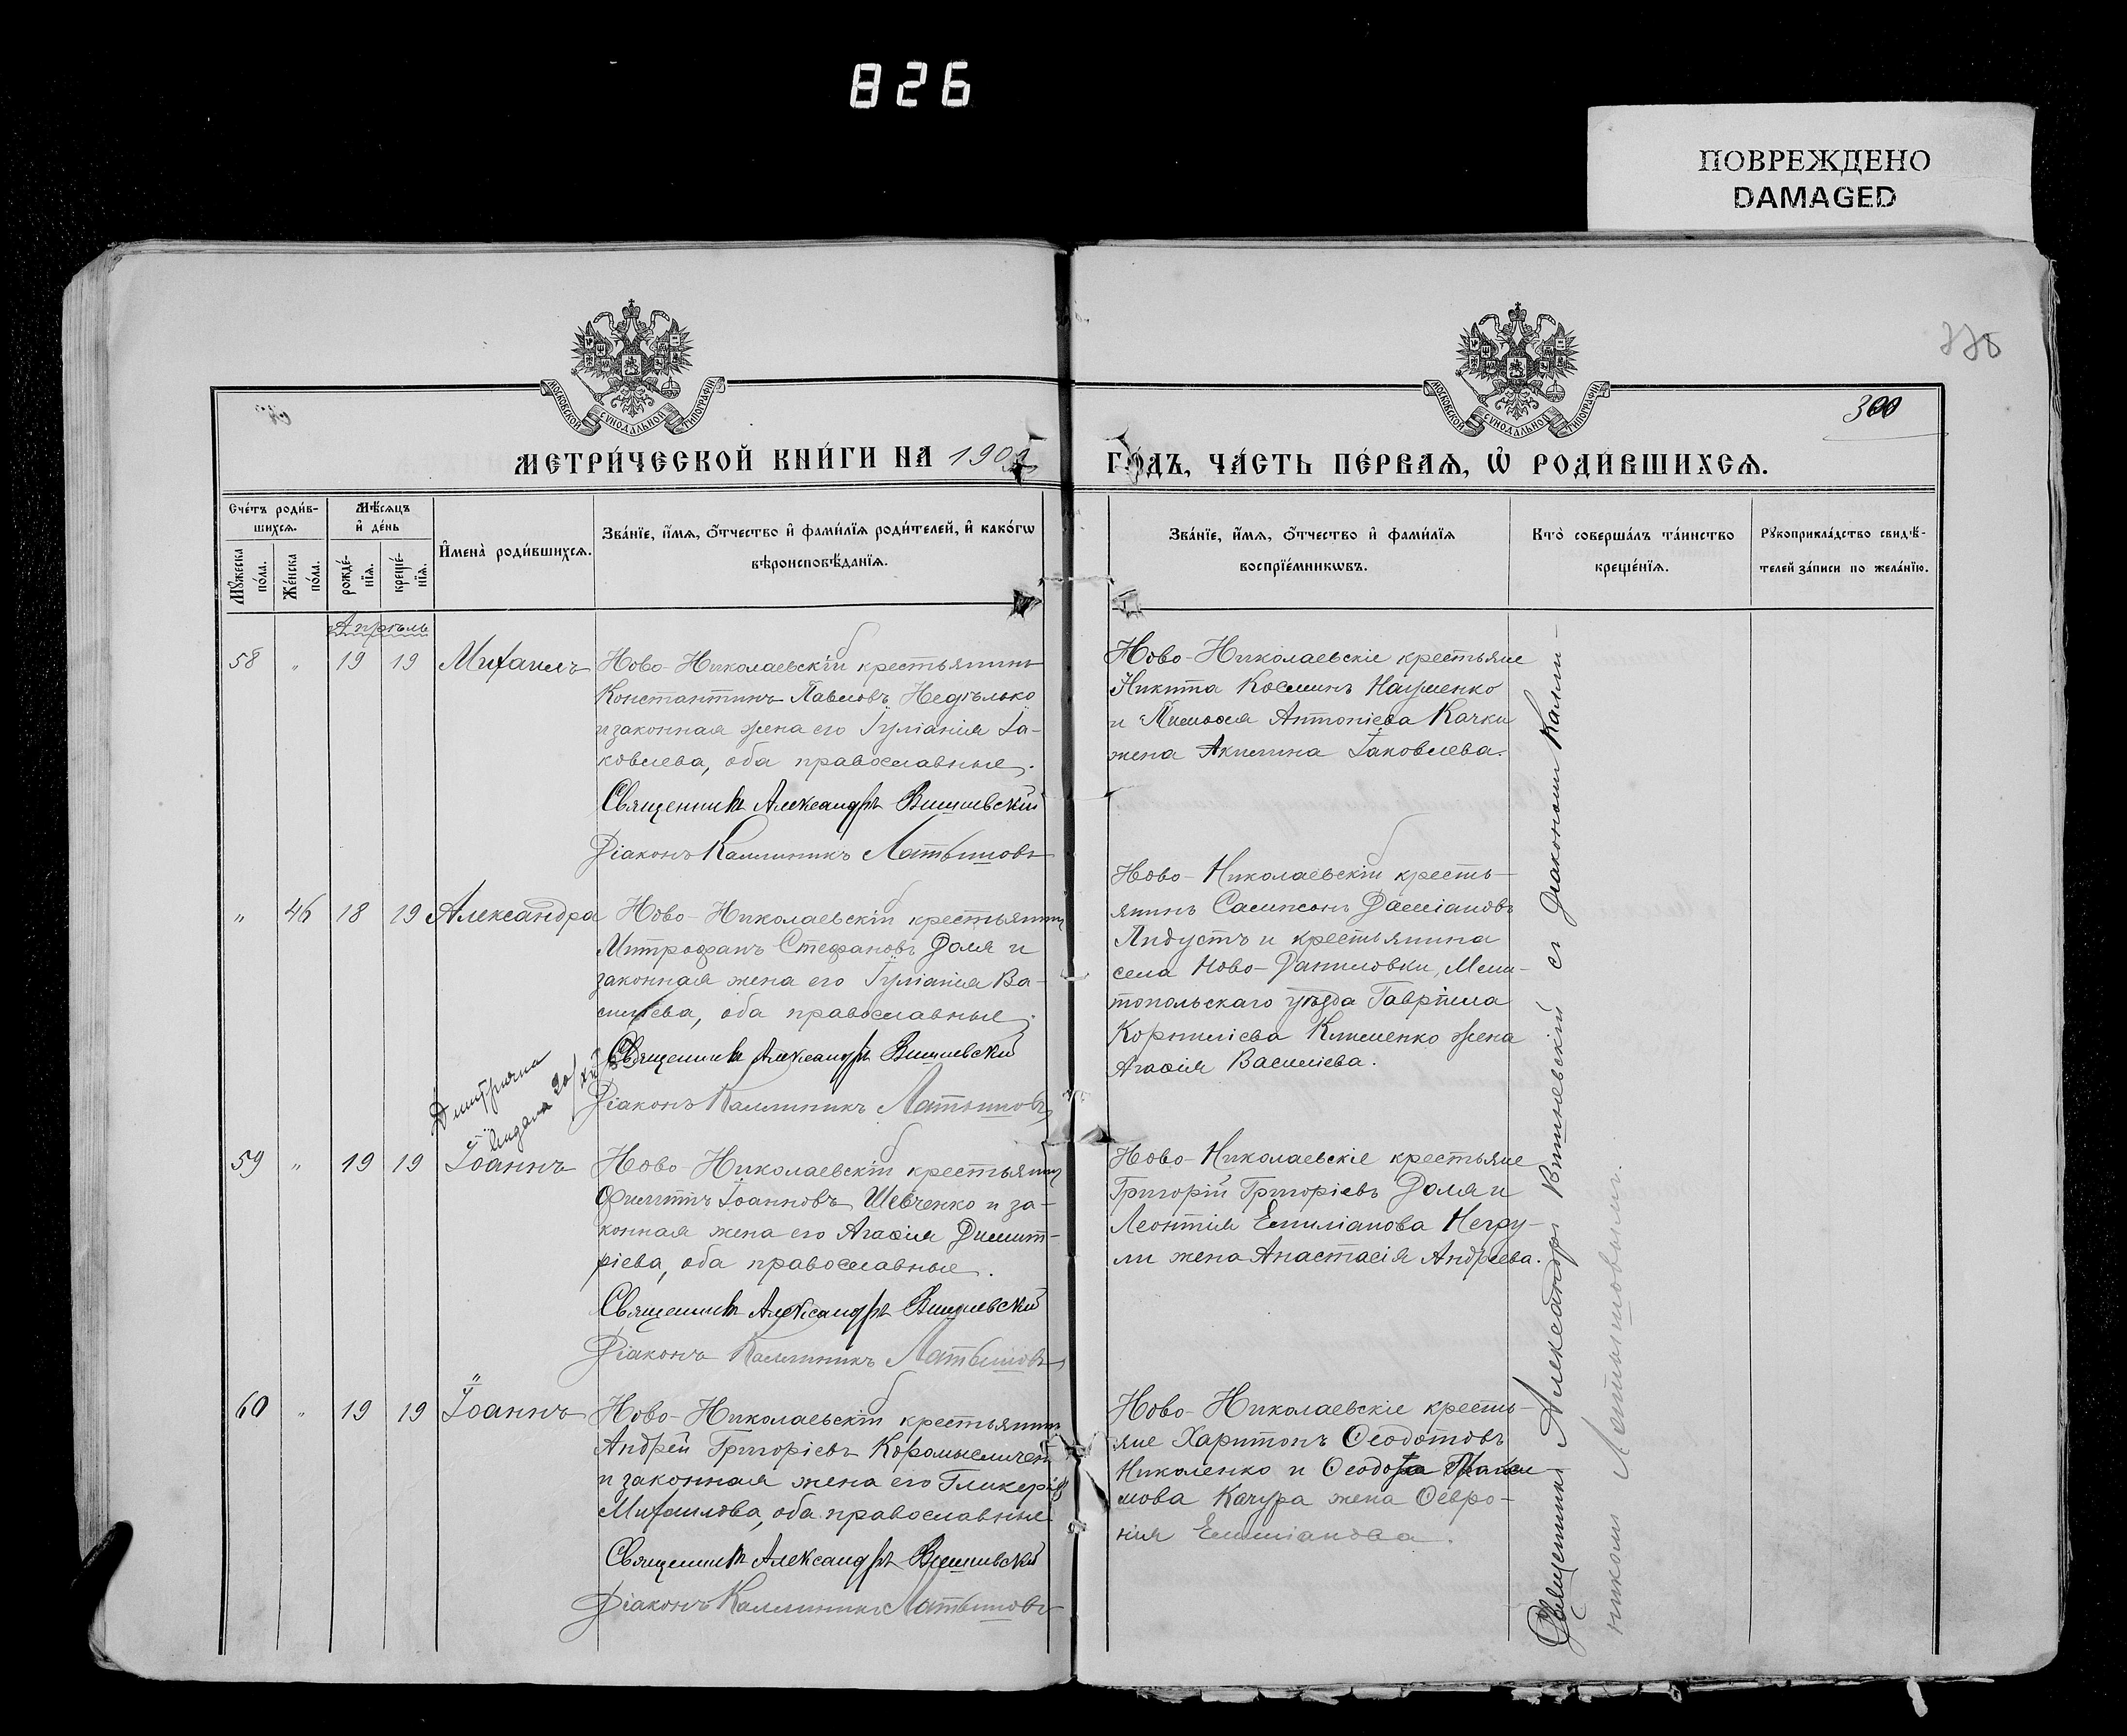 826
ПОВРЕЖДЕНО
DAMAGED
300
МОСКОВСКОЙ СѴНОДАЛЬНОЙ ТИПОГРАФІИ
МОСКОВСКОЙ СѴНОДАЛЬНОЙ ТИПОГРАФІИ
МЕТРИ́ЧЕСКОЙ КНИ́ГИ НА 190
ГО́ДЪ, ЧА́СТЬ ПЕ́РВАЯ, Ѽ РОДИ́ВШИХСЯ.
Сче́тъ роди́в-
шихся.
Мѣ́сяцъ
и҆ де́нь
Мꙋ́жеска по́ла.
Же́нска по́ла.
рожде́-
нїя.
креще́-
нїя.
И҆мена̀ роди́вшихся.
Зва́нїе, и҆́мя, ѻ҆́тчество и҆ фами́лїя роди́телей, и҆ како́гѡ
вѣроисповѣ́данїя.
Зва́нїе, и҆́мя, ѻ҆́тчество и҆ фами́лїя
воспрїе́мникѡвъ.
Кто̀ соверша́лъ та́инство
креще́нїя.
Рꙋкоприкла́дство свидѣ́-
телей за́писи по жела́нїю.
Апрѣль
58 " 19 19 Михаилъ
Ново-Николаевскій крестьянинъ
Константинъ Павловъ Недѣлько
и законная жена его Іуліанія Іа-
ковлева, оба православные.
Священникъ Александръ Вишневскій
Діаконъ Каллиникъ Латышовъ
Ново-Николаевскіе крестьяне
Никита Косминъ Науменко
и Антоніева Качки
жена Акилина Іаковлева.
" 46 18 19 Александра
Ново-Николаевскій крестьянинъ
Митрофанъ Стефановъ Доля и
законная жена его Іуліанія Ва-
силіева, оба православные.
Священникъ Александръ Вишневскій
Діаконъ Каллиникъ Латышовъ
Ново-Николаевскій кресть-
янинъ Сампсонъ Даміановъ
и крестьянина
села Ново-Даниловки, Мели-
топольскаго уѣзда Гавріила
Корниліева Клименко жена
Агаѳія Василіева.
59 " 19 19 Іоаннъ
Ново-Николаевскій крестьянинъ
Филиппъ Іоанновъ Шевченко и за-
конная жена его Агаѳія Димит-
ріева, оба православные.
Священникъ Александръ Вишневскій
Діаконъ Каллиникъ Латышовъ
Ново-Николаевскіе крестьяне
Григорій Григоріевъ Доля и
Леонтія Емиліанова Негру-
ли жена Анастасія Андреева.
60 " 19 19 Іоаннъ
Ново-Николаевскій крестьянинъ
Андрей Григоріевъ
и законная жена его Гликерія
Михаилова, оба православные
Священникъ Александръ Вишневскій
Діаконъ Каллиникъ Латышовъ
Ново-Николаевскіе кресть-
яне Харитонъ Ѳеодотовъ
Николенко и Ѳеодота Макси
мова Качура жена Ѳевро-
нія Емиліанова.
Священникъ Александръ Вишневскій съ діакономъ Калли-
никомъ Латышовымъ.